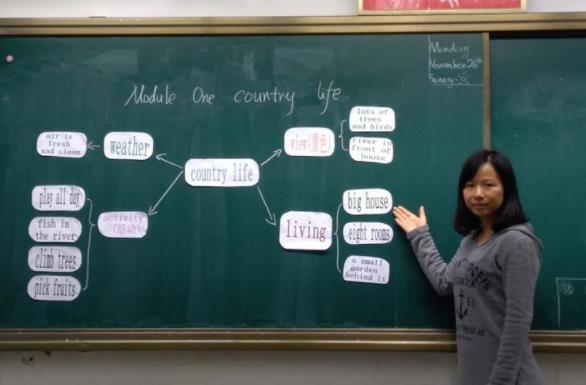 Monday
November 26th
Sunny
Module One country life
air is
fresh
and clean
weather
country life
view(景色)
lots of
trees
and birds
river in
front of
house
play all day
fish in
the river
climb trees
pick fruits
activity
(活动)
living
big house
eight rooms
a small
garden
behind it
OCEAN